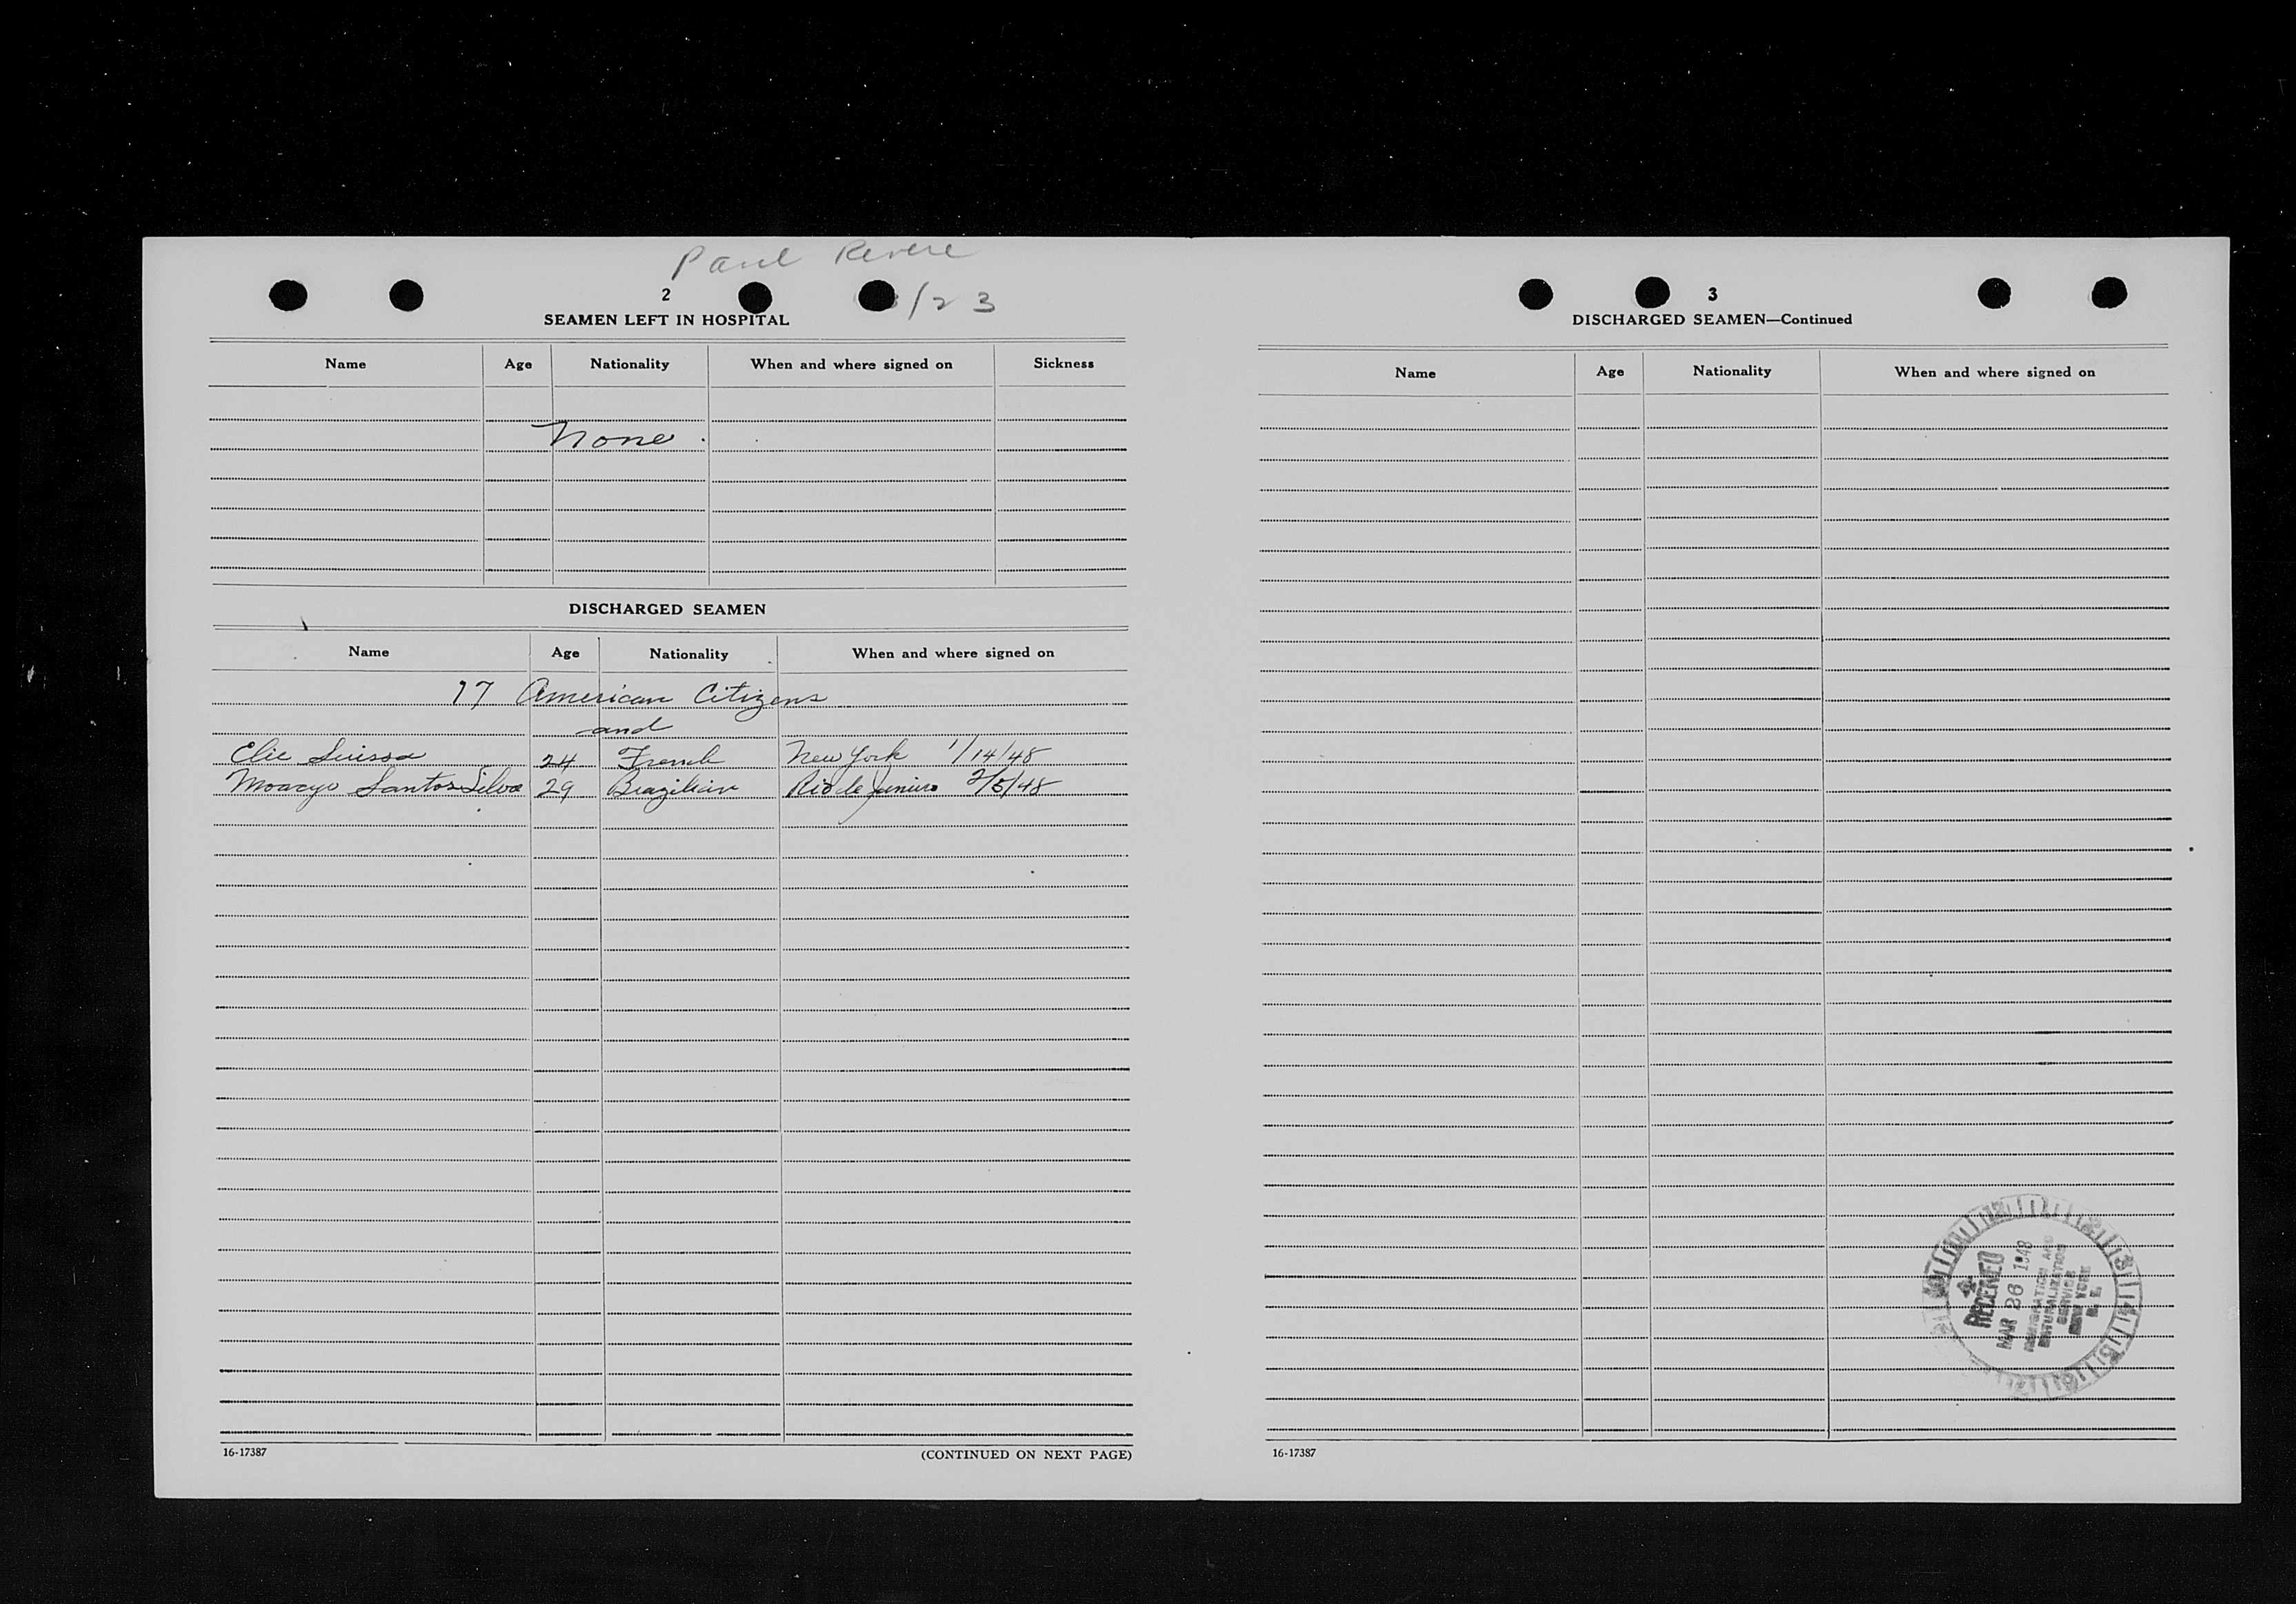 Paul Revere
/23
2
SEAMEN LEFT IN HOSPITAL
Name Age Nationality When and where signed on Sickness
None
DISCHARGED SEAMEN
Name Age Nationality When and where signed on
17 American Citizens
and
Elie Suissa 24 French New York 1/14/48
Moacyr Santos Silva 29 Brazilian Rio de Janiero 2/5/48
16-17387 (CONTINUED ON NEXT PAGE)
3
DISCHARGED SEAMEN—Continued
Name Age Nationality When and where signed on
RECEIVED
MAR 26 1948
IMMIGRATION AND
NATURALIZATION
SERVICE
NEW YORK
16-17387